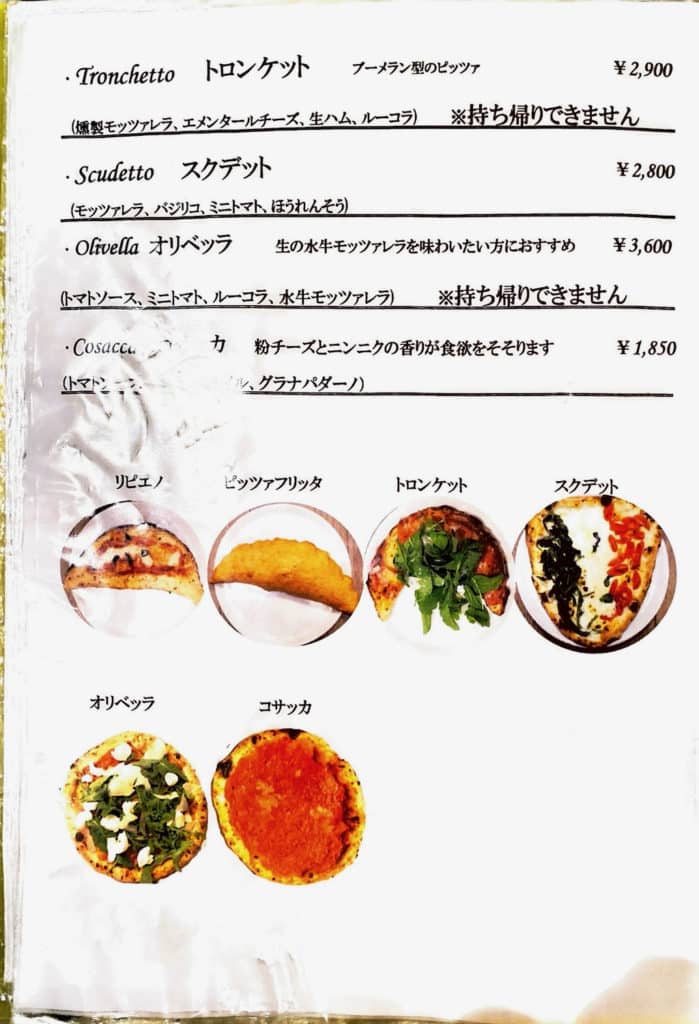 ・Tronchetto トロンケット ブーメラン型のピッツァ ￥2,900
(燻製モッツァレラ、エメンタールチーズ、生ハム、ルーコラ) ※持ち帰りできません
・Scudetto スクデット ￥2,800
(モッツァレラ、バジリコ、ミニトマト、ほうれんそう)
・Olivella オリベッラ 生の水牛モッツァレラを味わいたい方におすすめ ￥3,600
(トマトソース、ミニトマト、ルーコラ、水牛モッツァレラ) ※持ち帰りできません
・Cosacca カ 粉チーズとニンニクの香りが食欲をそそります ￥1,850
(トマトソース、 ル、グラナパダーノ)
リピエノ ピッツァフリッタ トロンケット スクデット
オリベッラ コサッカ